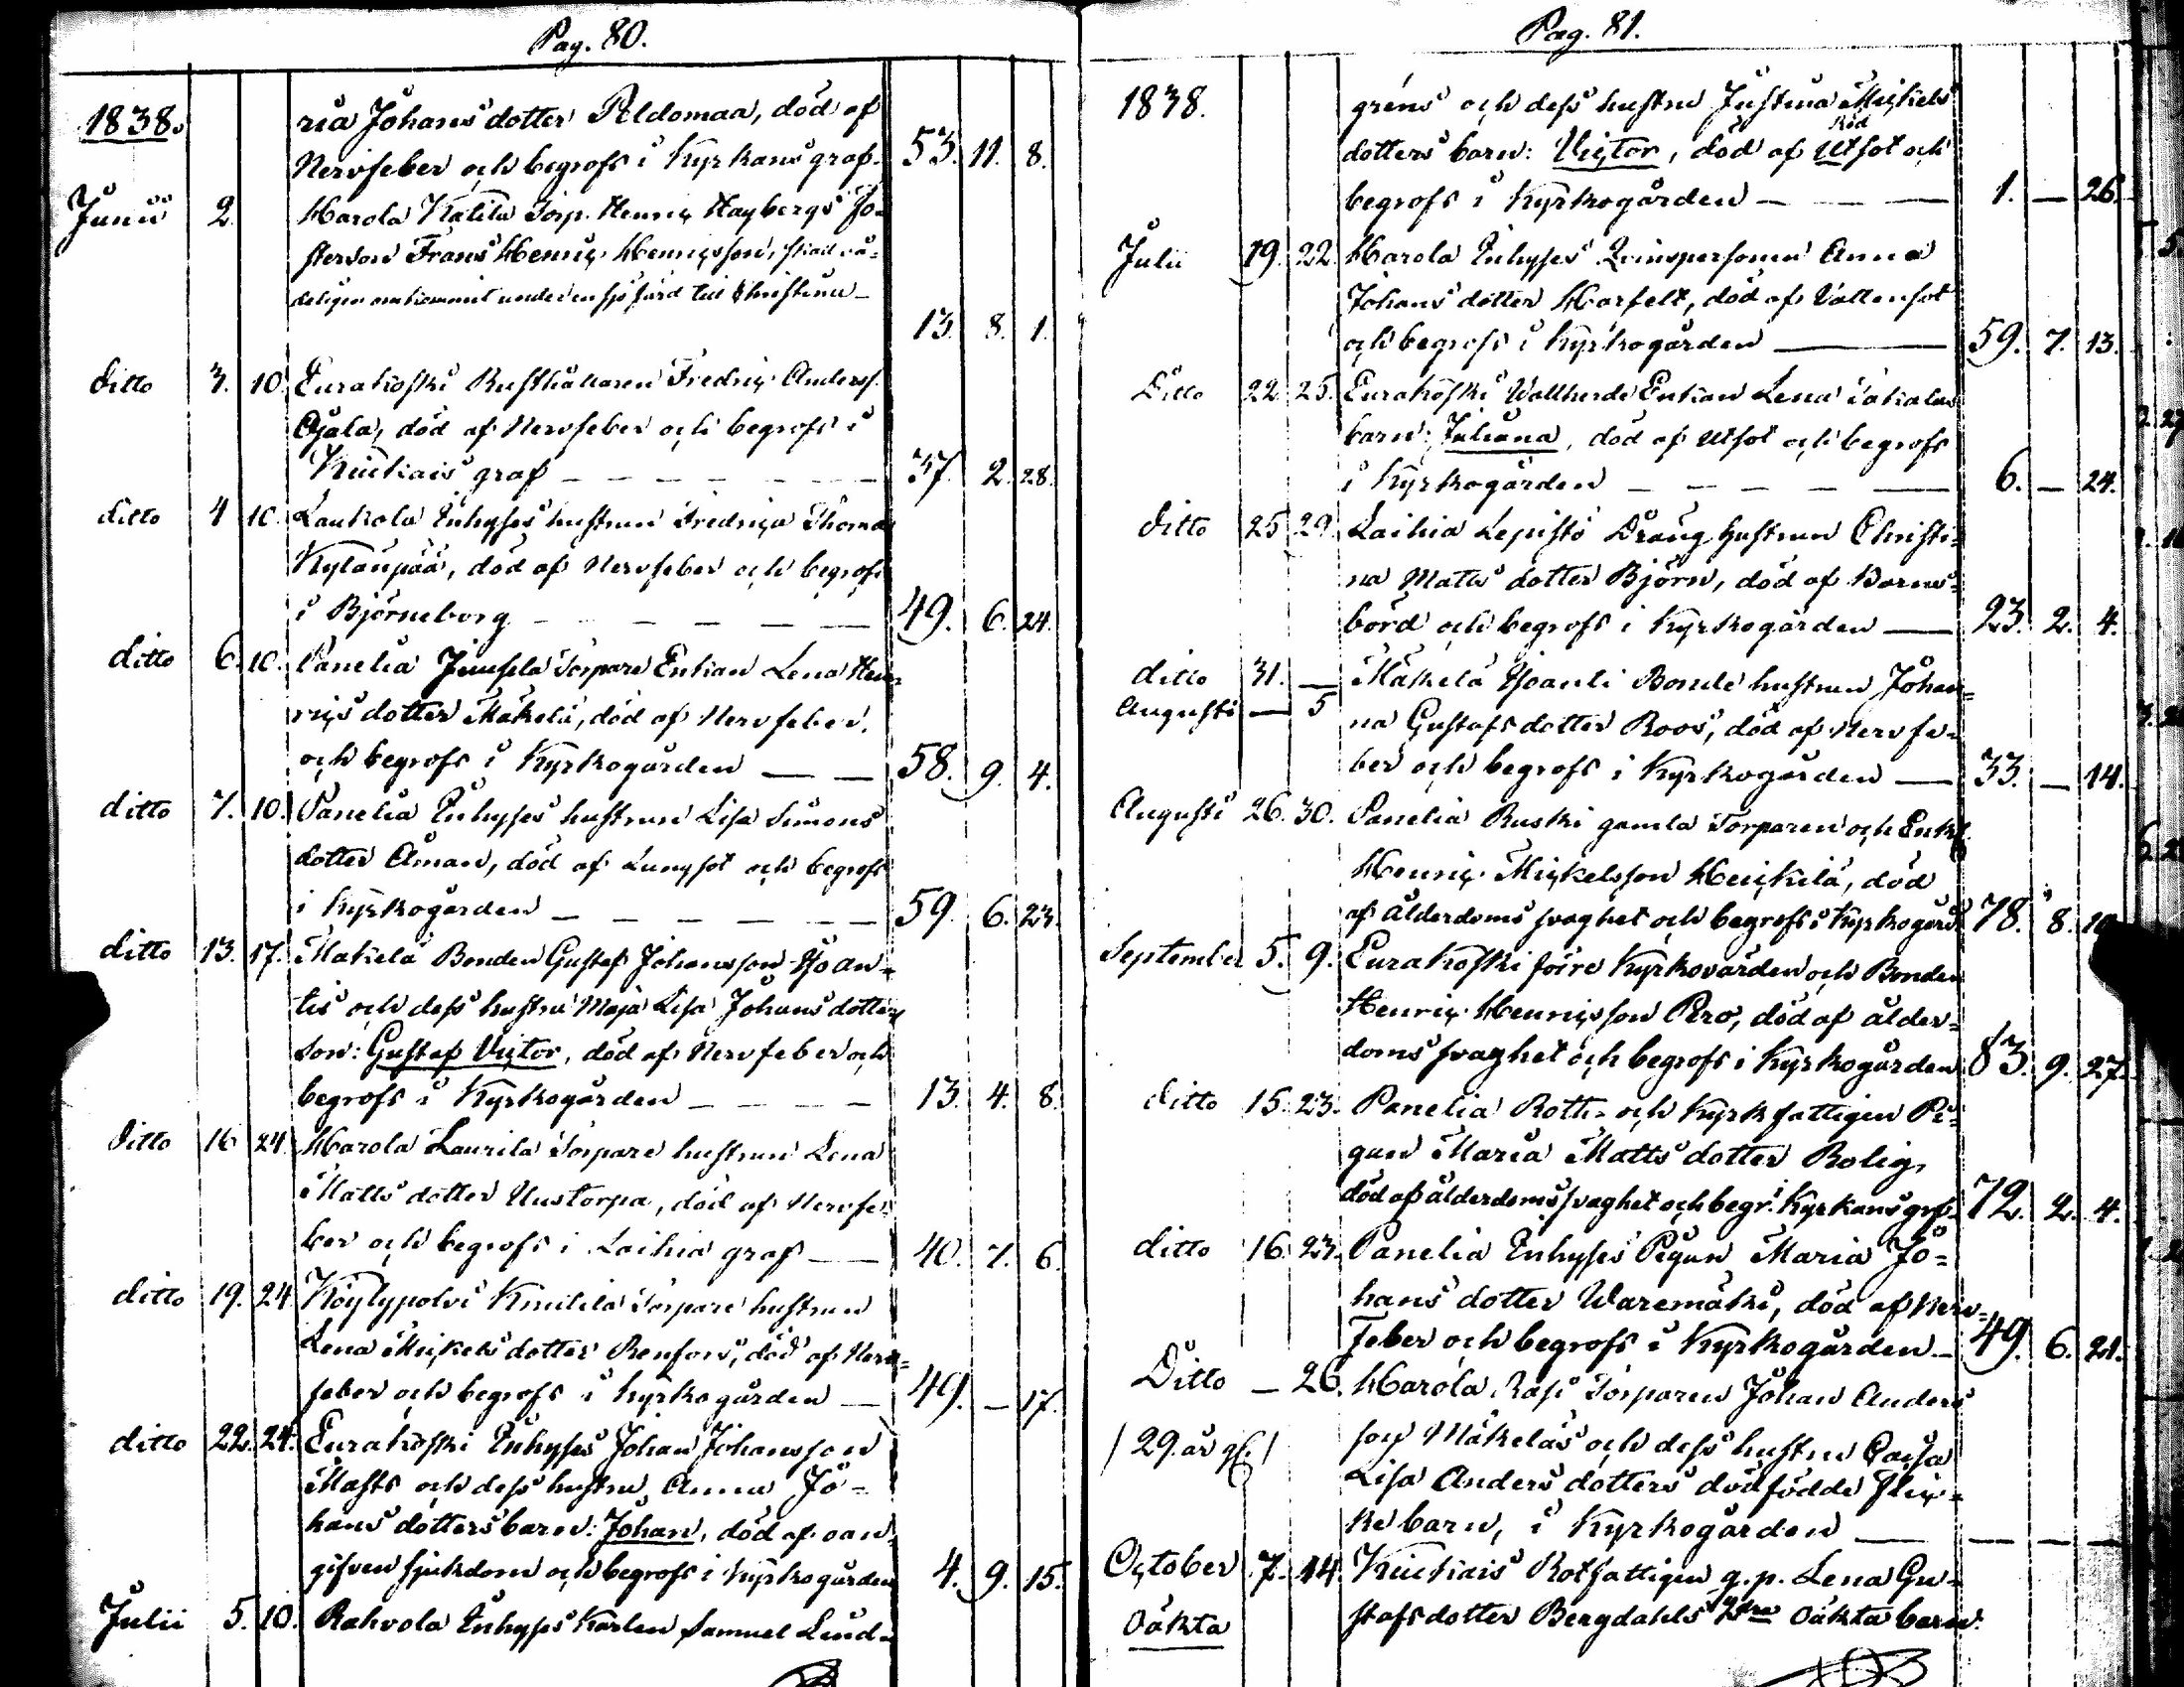 Pag. 80.
1838.
ria Johans dotter Peldomaa, död af
Nervfeber och begrofs i Kyrkans graf. 53. 11. 8.
Junii 2. Harola Katila Torp. Henric Hagbergs Fo-
sterson Frans Henric Henricsson, skad vå-
deligen omkommit under en sjöfärd till Christina 13. 8. 1.
ditto 3. 10. Eurakoski Rusthållaren Fredric Anderss.
Ojala, död af Nervfeber och begrofs i
Kiukais graf 37. 2. 28.
ditto 4 10. Laukola Inhyses hustrun Fredrica Thomas
Kylänpää, död af Nervfeber och begrofs
i Björneborg 49. 6. 24.
ditto 6. 10. Panelia Juusela Torpare Enkan Lena Hen-
rics dotter Mäkelä, död af Nervfeber.
och begrofs i Kyrkogården 58. 9. 4.
ditto 7. 10. Panelia Inhyses hustrun Lisa Simons
dotter Åman, död af Lungsot och begrofs
i Kyrkogården 59. 6. 23.
ditto 13. 17. Mäkelä Bonden Gustaf Johansson Yjoan-
tis och dess hustru Maja Lisa Johans dotters
son: Gustaf Victor, död af Nervfeber och
begrofs i Kyrkogården 13. 4. 8.
ditto 16 24. Harola Laurila Torpare hustrun Lena
Matts dotter Uustorpa, död af Nervfe-
ber och begrofs i Laihia graf 40. 7. 6.
ditto 19. 24. Köylypolvi Knuutila Torpare hustrun
Lena Mickels dotter Renfors, död af Nerv-
feber och begrofs i Kyrkogården 49. — 17.
ditto 22. 24. Eurakoski Inhyses Johan Johansson
Masts och dess hustru Anna Jo-
hans dotters barn: Johan, död af oan-
gifven sjukdom och begrofs i Kyrkogården 4. 9. 15.
Julii 5. 10. Rahvola Inhyses Karlen Samuel Lind-
Pag. 81.
1838.
gréns och dess hustru Justina Mickels
Röd
dotters barn: Victor, död af Utsot och
begrofs i Kyrkogården 1. — 26.
Julii 19. 22. Harola Inhyses Qvinspersonen Anna
Johans dotter Harfelt, död af Vattensot
och begrofs i Kyrkogården 59. 7. 13.
Ditto 22. 25. Eurakoski Wallherde Enkan Lena Sakalas
barn: Juliana, död af Utsot och begrofs
i Kyrkogården 6. — 24.
ditto 25 29. Laihia Lepistö Dräng hustrun Christi-
na Matts dotter Björn, död af Barns-
börd och begrofs i Kyrkogården 23. 2. 4.
ditto 31. — Mäkelä Yjoanti Bonde hustrun Johan-
Augusti — 5 na Gustafs dotter Roos, död af Nervfe-
ber och begrofs i Kyrkogården 33. — 14.
Augusti 26. 30. Panelia Ruski gamla Torparen och Enkl.
Henric Mickelsson Heickilä, död
af ålderdoms svaghet och begrofs i Kyrkogård. 78. 8. 19.
September 5. 9. Eurakoski förre Kyrkovärden och Bonden
Henric Henricsson Pero, död af ålder-
doms svaghet och begrofs i Kyrkogården 83. 9. 27.
ditto 15. 23. Panelia Rotte- och Kyrkfattigen Pi-
gan Maria Matts dotter Rolig,
död af ålderdoms svaghet och begr. i Kyrkans graf. 72. 2. 4.
ditto 16. 23. Panelia Inhyses Pigan Maria Jo-
hans dotter Waremäki, död af Nerv-
feber och begrofs i Kyrkogården 49. 6. 21.
Ditto — 26. Harola Rasi Torparen Johan Anders
/29. år gl./ son Mäkeläs och dess hustru Caisa
Lisa Anders dotters dödfödde Flic-
ke barn, i Kyrkogården
October 7. 14. Kiukais Rotfattigen q.p. Lena Gu-
Oäkta stafsdotter Bergdahls oäkta barn.